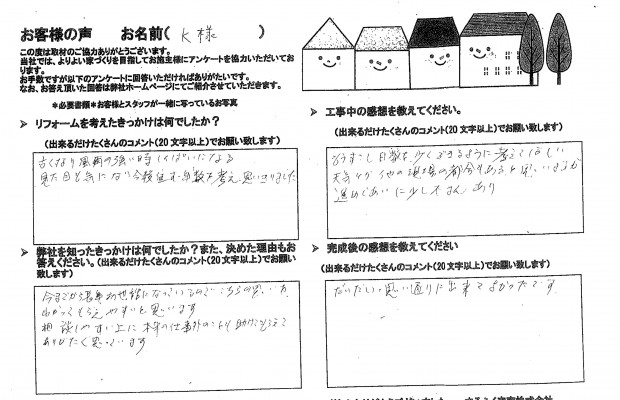 お客様の声　お名前(　K様　)
この度は取材のご協力ありがとうございます。
当社では、よりよい家づくりを目指してお施主様にアンケートを協力いただいております。
お手数ですが以下のアンケートに回答いただければありがたいです。
なお、お答え頂いた回答は弊社ホームページにてご紹介させていただきます。
＊必要書類＊お客様とスタッフが一緒に写っているお写真
➢ リフォームを考えたきっかけは何でしたか？
（出来るだけたくさんのコメント(20文字以上)でお願い致します）
古くなり風雨の強い時
見た目も気になり 年数を考え思いきりました
➢ 弊社を知ったきっかけは何でしたか？また、決めた理由もお答えください。（出来るだけたくさんのコメント(20文字以上)でお願い致します）
今までから お世話になっているので こちらの思いが
わかってもらえやすいと思います
相談しやすい上に 本来の仕事外のことも助けてもらえて
ありがたく思っています
➢ 工事中の感想を教えてください。
（出来るだけたくさんのコメント(20文字以上)でお願い致します）
もうすこし日数を少くできるように考えてほしい
天気 他の現場の都合もあると思いますが
➢ 完成後の感想を教えてください
（出来るだけたくさんのコメント(20文字以上)でお願い致します）
だいたい思い通りに出来てよかったです